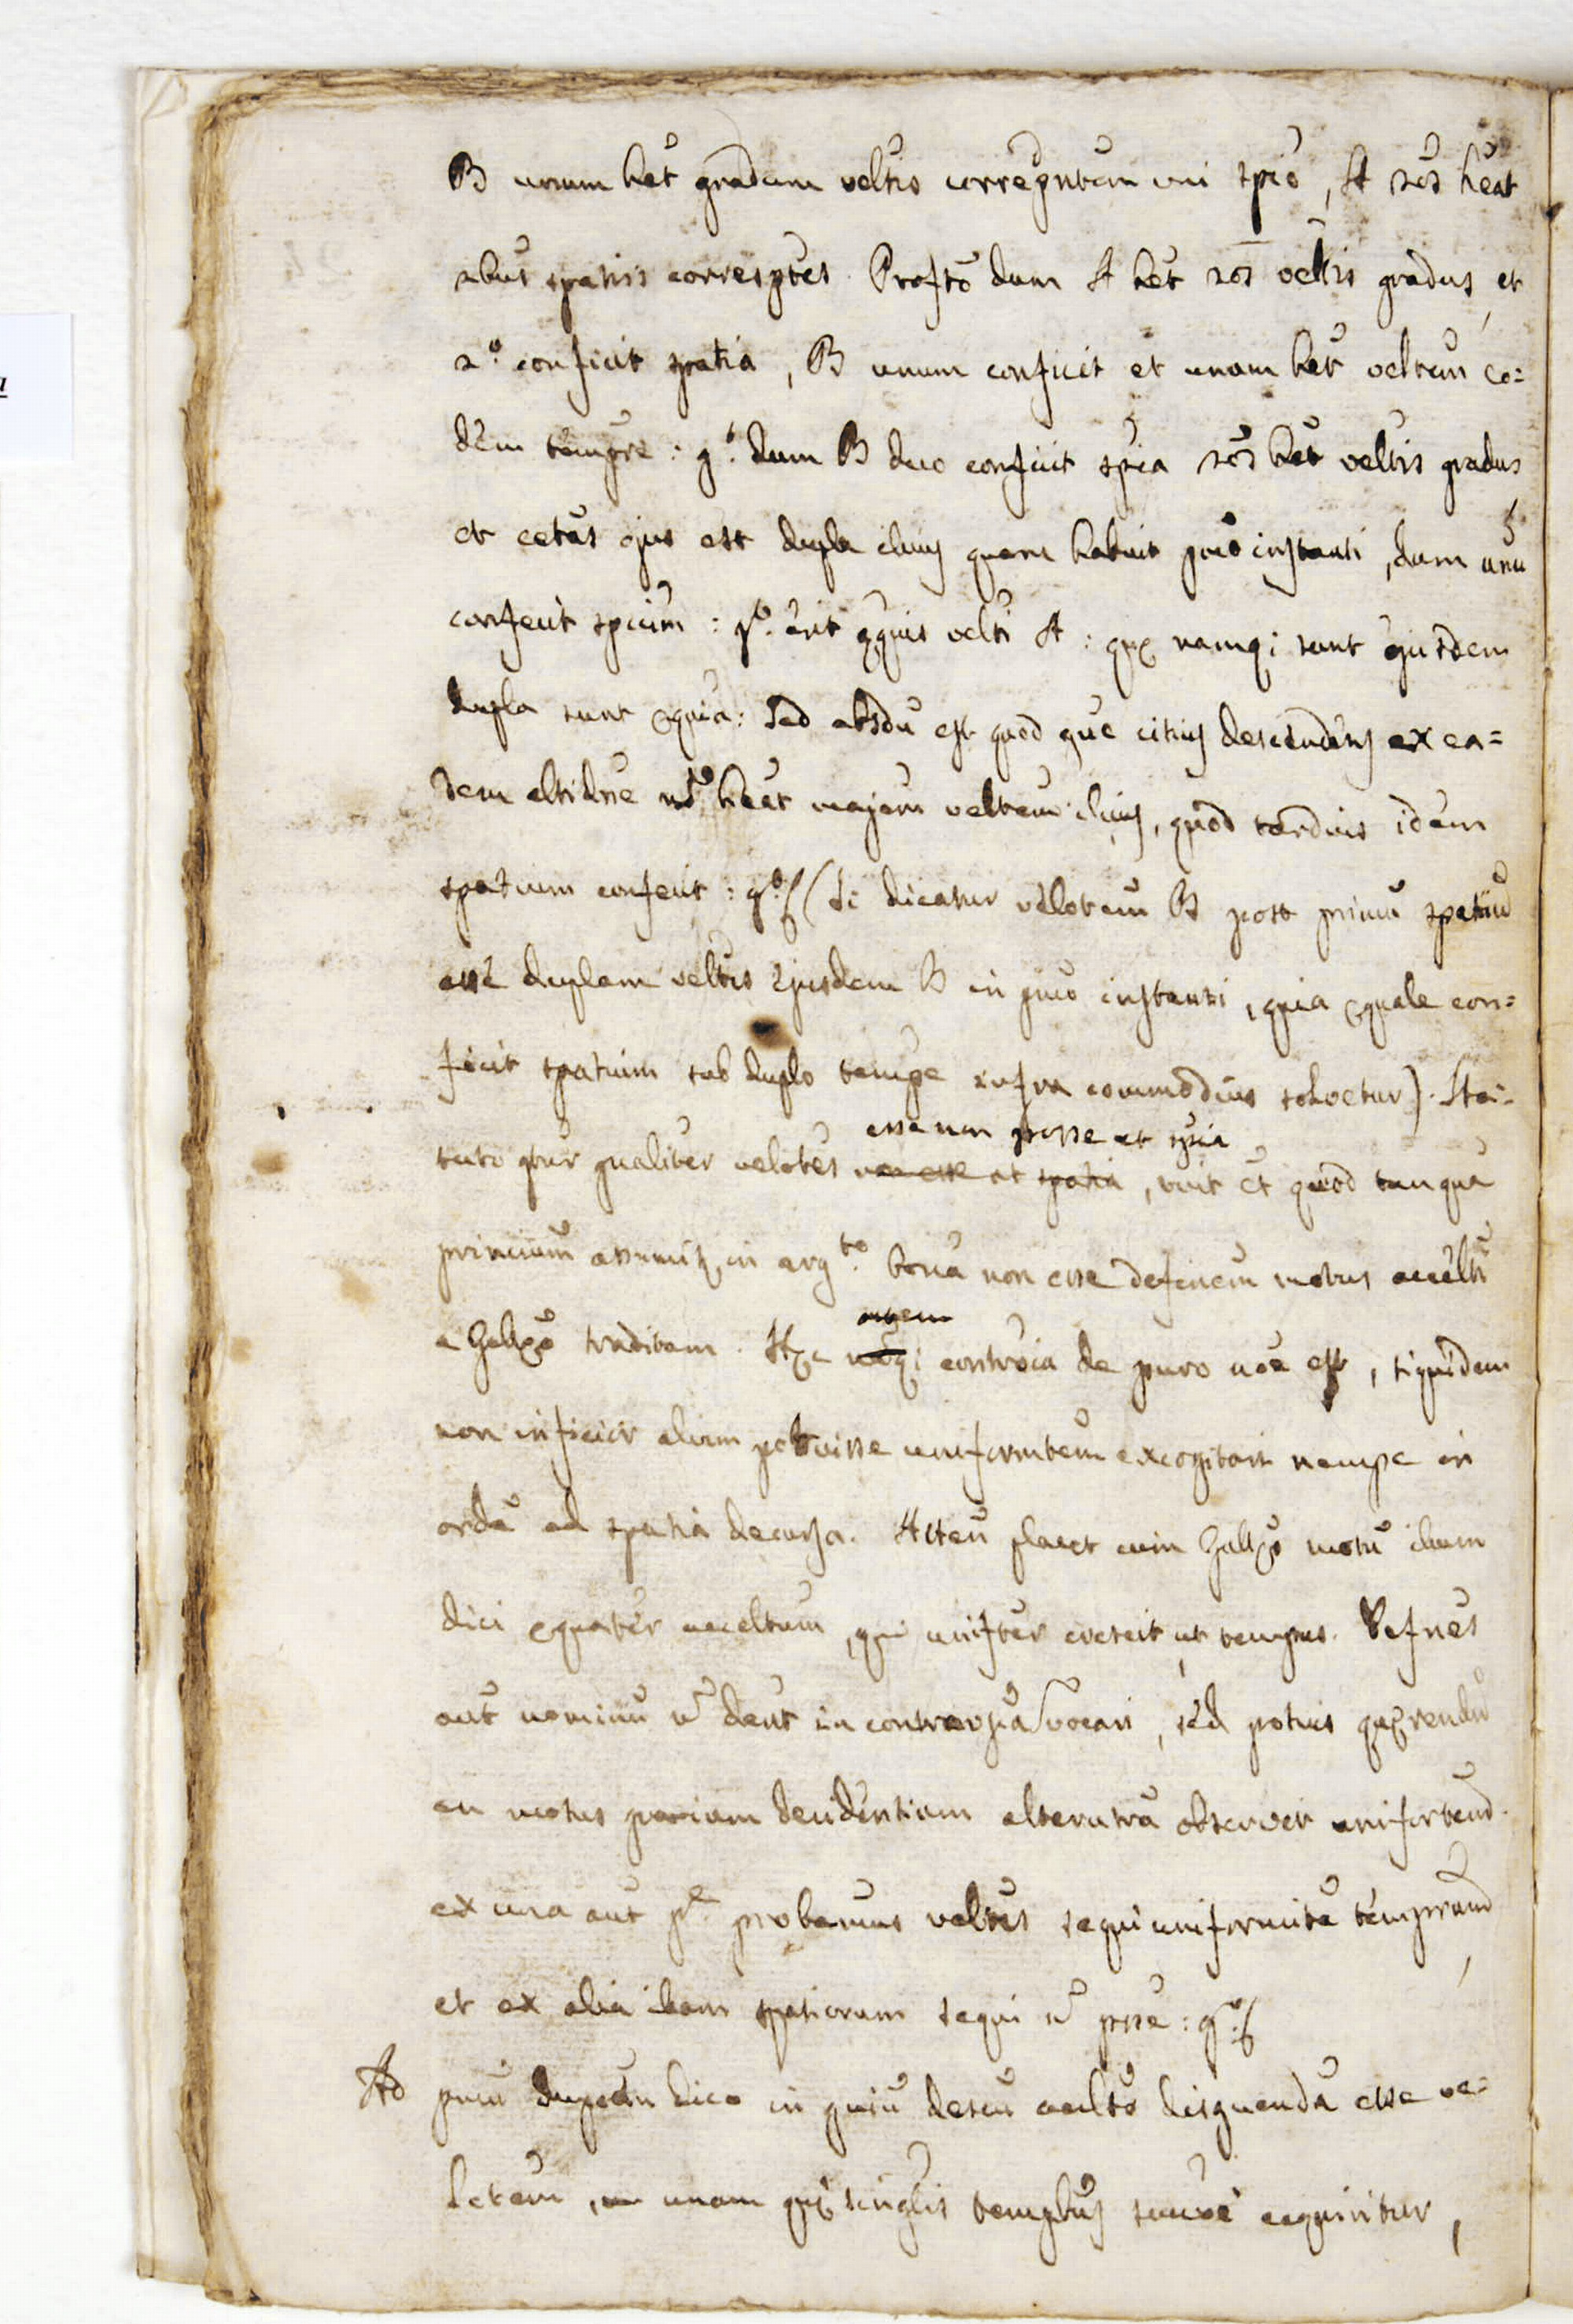 B unum het gradum veltis correspntem uni spio, A 2os heat
2bus spatiis corresptes. Profto dum A het 2os veltis gradus, et
2o conficit spatia, B unum conficit et unam het veltem eo=
dem tempre: go. dum B duo conficit spia 2os het veltis gradus
et celtas ejus est dupla illius quam habuit pmo instanti, dum unu
confecit spium: go. erit æquis velti A: quæ namq; sunt ejusdem
dupla sunt æquia: sed absdu est quod que citius descendens ex ea=
dem altidne no heat majem veltem illius, quod tardius idem
spatium confecit: go. (Si dicatur velotem B post primu spatiu
esse duplam veltis ejusdem B in pmo instanti, quia æquale con=
ficit spatium sub duplo tempe infra commodius solvetur). Sta=
esse non posse ut spia
tuto grur qualiter velotes non esse ut spatia, ruit et quod tanqua
principium assumit, in argto. bona non esse definem motus accelti
autem
a Gallæo traditam. Hæc nãq; controia de puro noe est, siquidem
non inficior aliam potuisse uniformtem excogitari nempe in
orde ad spatia decursa. Atten placet cum Gallæo motu illum
dici equater acceltum, qui unifter crescit, ut tempus. Defnes
aut nominu n dent in controversia vocari, sed potius quærendu
an motus gravium descendentium alterutra observet unifortem
ex una aut pe. probamus veltes sequi uniformite temporum,
et ex alia illam spatiorum sequi n posse: go.
Ad pmu dico in descu accelto disquenda esse ve=
lotem, unam quæ singlis tempbus acquiritur,